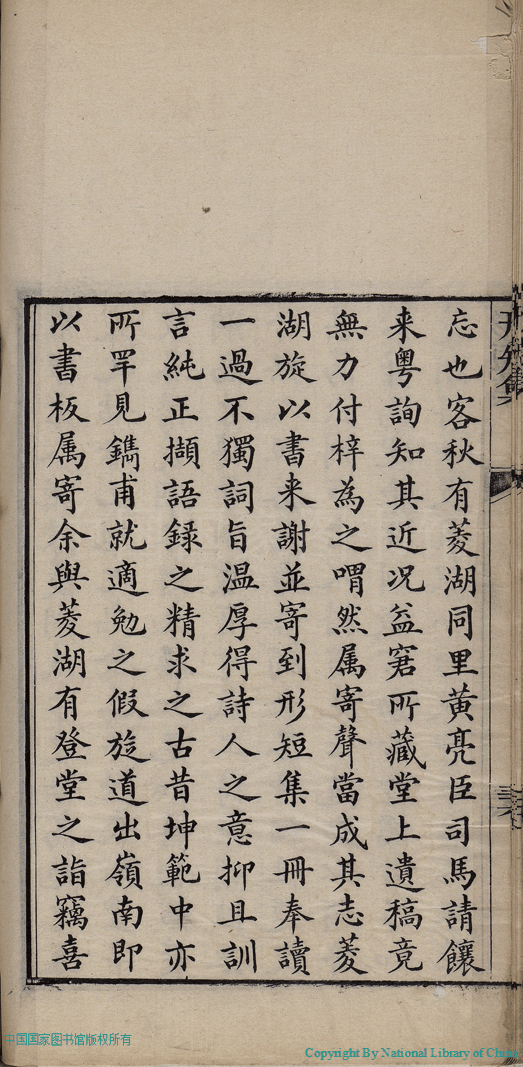 忘也客秋有菱湖同里黄亮臣司馬請饟
来粤詢知其近况益窘所藏堂上遺稿竟
無力付梓為之喟然属寄聲當成其志菱
湖旋以書来謝並寄到形短集一冊奉讀
一過不獨詞旨温厚得詩人之意抑且訓
言純正擷語録之精求之古昔坤範中亦
所罕見鐫甫就適勉之假旋道出嶺南即
以書板属寄余與菱湖有登堂之詣竊喜
中国国家图书馆版权所有
Copyright By National Library of China